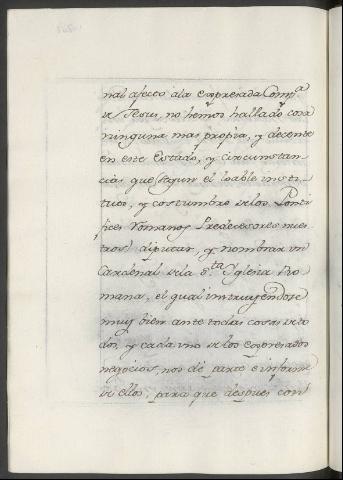 nal afecto ala expresada Comp.a
de Jesus, no hemos hallado cosa
ninguna mas propria, y decente
en este Estado, y circunstan
cias que segun el loable insti
tuto, y costumbre de los Ponti
fices Romanos Predecesores nues
tros diputar, y nombrar un
Cardenal de la S.ta Yglesia Ro
mana, el qual instruyendose
muy bien ante todas cosas de to
dos, y cada uno de los expresados
negocios, nos dé parte e informe
de ellos, para que despues con